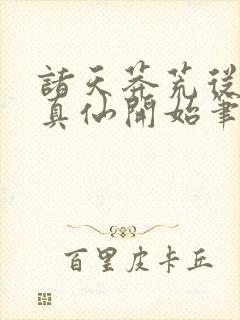 諸天莽荒從
真仙開始筆
百里皮卡丘